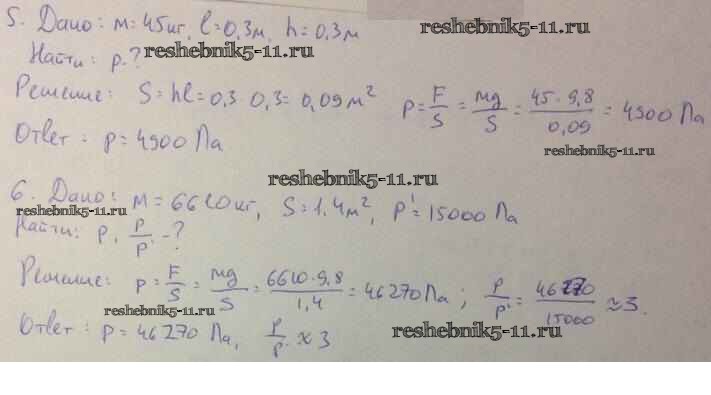 5. Дано: m = 45 кг, l = 0,3 м, h = 0,3 м
reshebnik5-11.ru
Найти: p-?
reshebnik5-11.ru
Решение: S = hl = 0,3 · 0,3 = 0,09 м² p = F/S = mg/S = 45 · 9,8/0,09 = 4900 Па
Ответ: p = 4900 Па
reshebnik5-11.ru
reshebnik5-11.ru
6. Дано: m = 6610 кг, S = 1,4 м², p' = 15000 Па
reshebnik5-11.ru
Найти: p, p/p' - ?
Решение: p = F/S = mg/S = 6610 · 9,8/1,4 = 46270 Па; p/p' = 46270/15000 ≈ 3.
reshebnik5-11.ru
Ответ: p = 46270 Па, p/p' ≈ 3
reshebnik5-11.ru